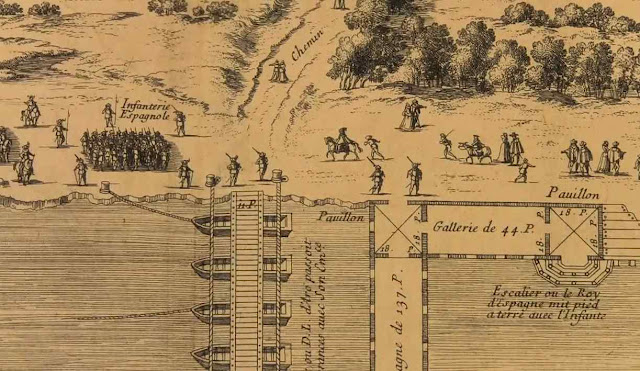 Chemin
Infanterie
Espagnole
11 P.
Pauillon
Pauillon
18. P.
18. P.
18. P.
18.
Gallerie de 44. P.
agne de 137. P.
ou D.L.
auec Son
Escalier ou le Roy
d'Espagne mit pied
a terre auec l'Infante